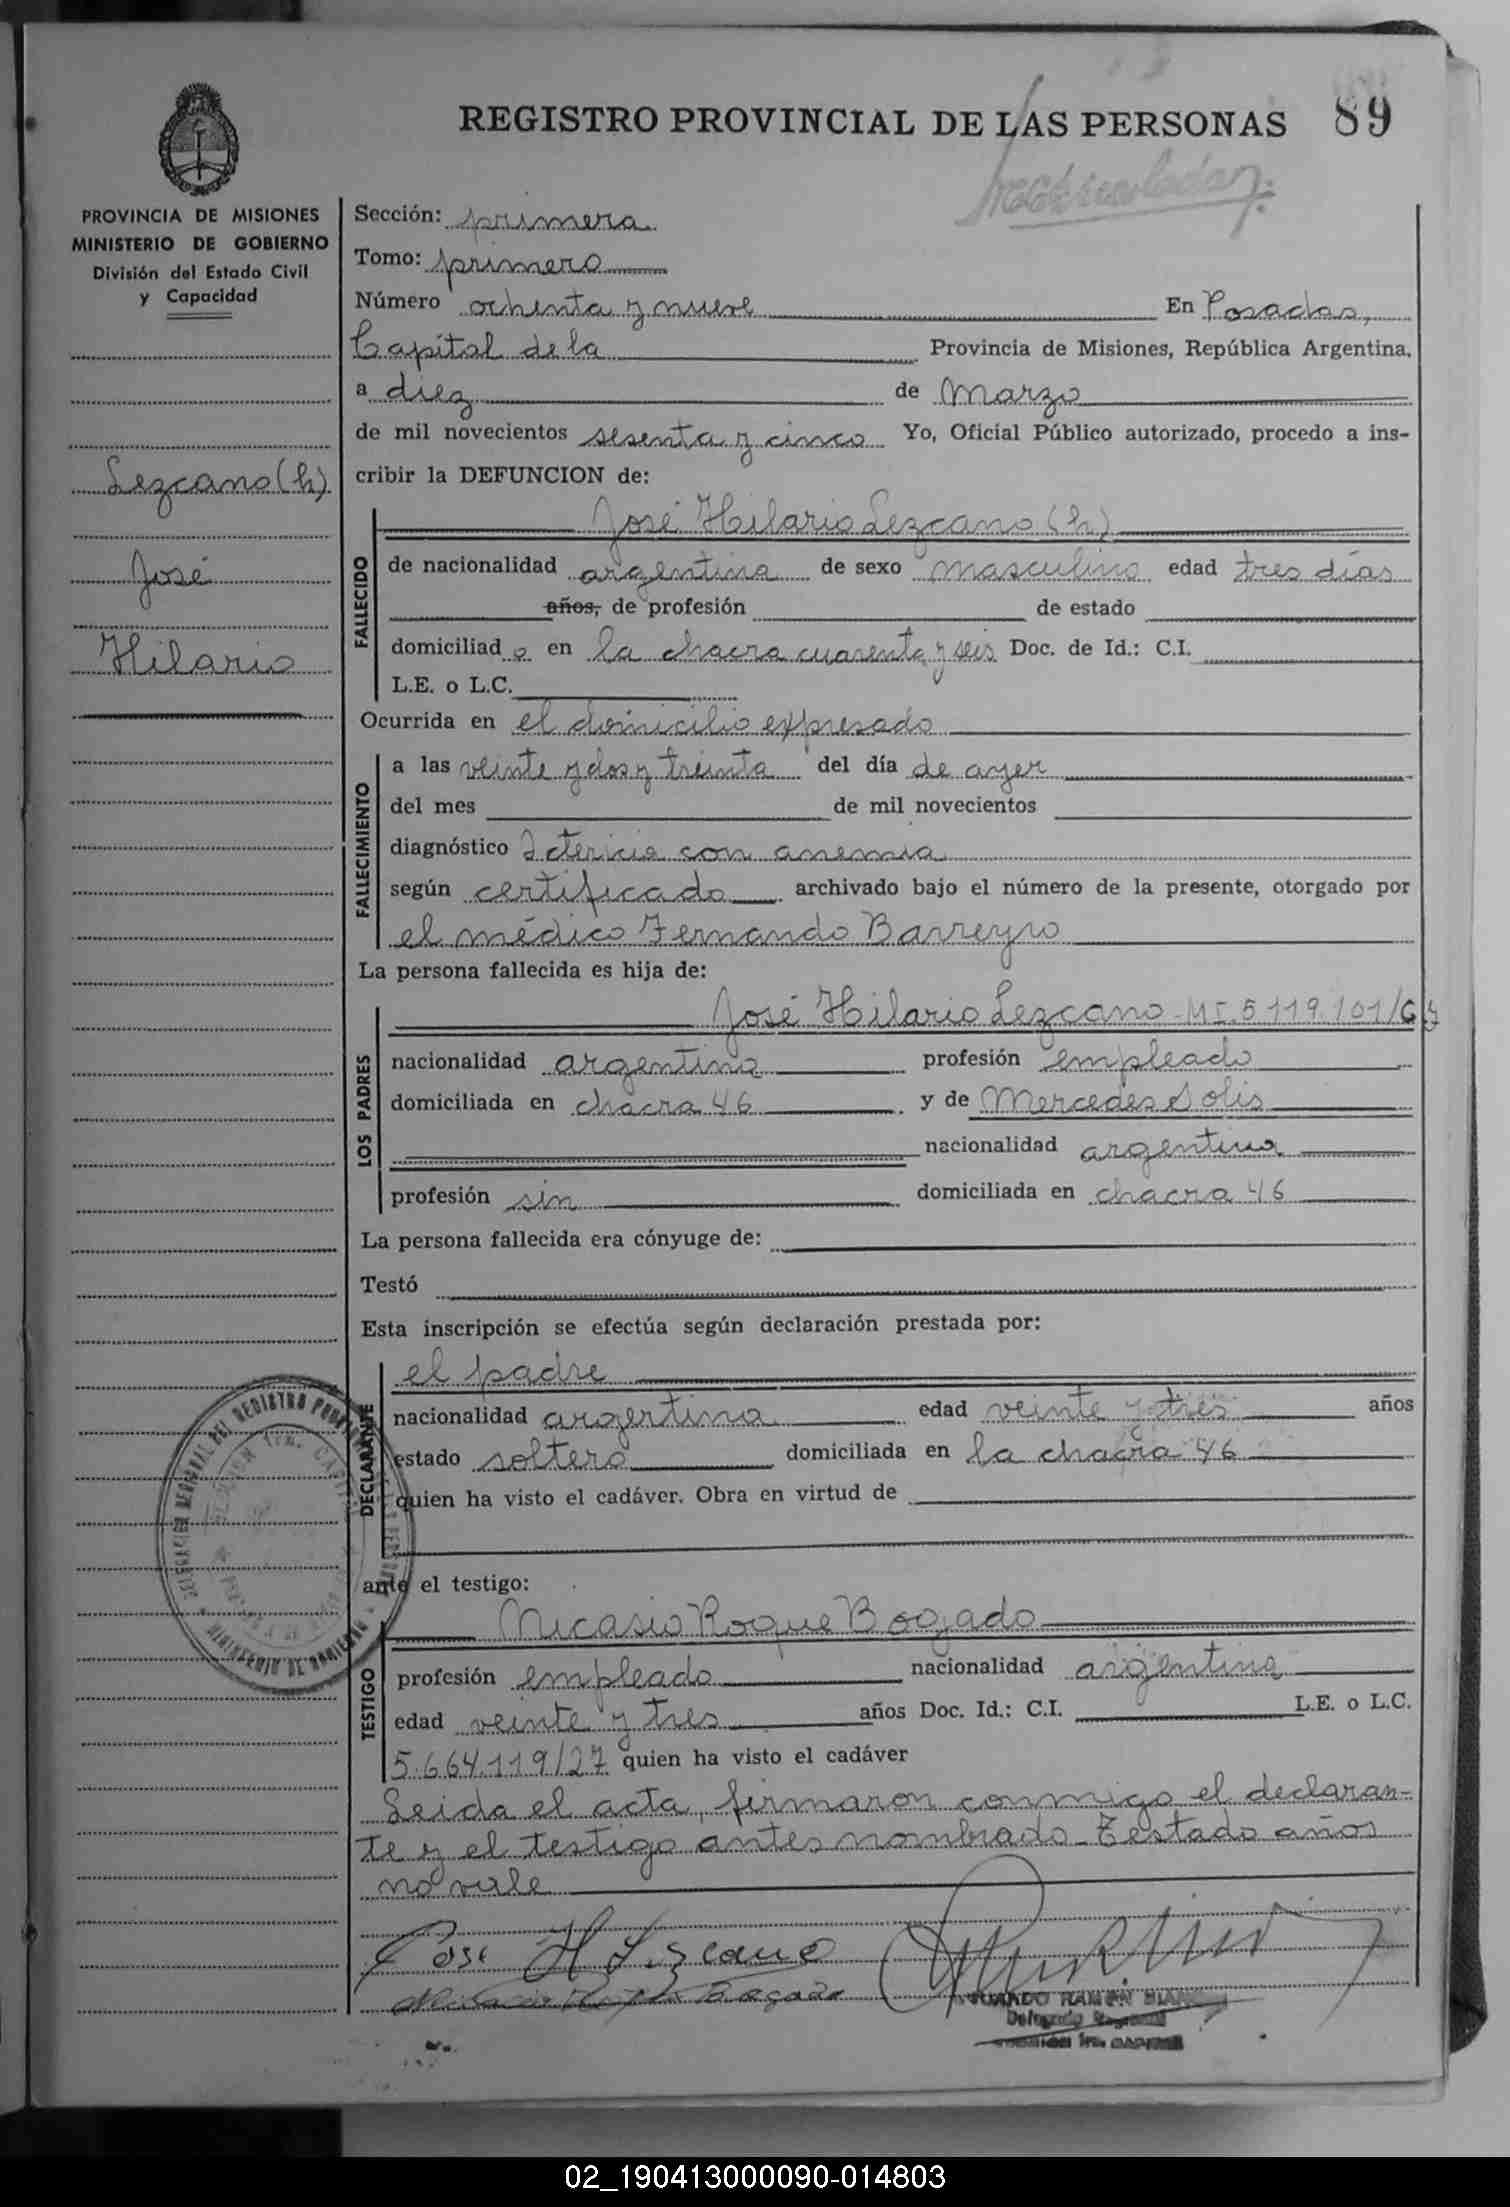 REGISTRO PROVINCIAL DE LAS PERSONAS 89
PROVINCIA DE MISIONES
MINISTERIO DE GOBIERNO
División del Estado Civil
y Capacidad
Lezcano (h)
José
Hilario
Sección: primera
Tomo: primero
Número ochenta y nueve En Posadas,
Capital de la Provincia de Misiones, República Argentina,
a diez de Marzo
de mil novecientos sesenta y cinco Yo, Oficial Público autorizado, procedo a ins-
cribir la DEFUNCION de:
FALLECIDO
José Hilario Lezcano (h)
de nacionalidad argentina de sexo masculino edad tres días
años, de profesión de estado
domiciliad o en la chacra cuarenta y seis Doc. de Id.: C.I.
L.E. o L.C.
Ocurrida en el domicilio expresado
FALLECIMIENTO
a las veinte y dos y treinta del día de ayer
del mes de mil novecientos
diagnóstico Ictericia con anemia
según certificado archivado bajo el número de la presente, otorgado por
el médico Fernando Barreyro
La persona fallecida es hija de:
LOS PADRES
José Hilario Lezcano - MI. 5.119.101/
nacionalidad argentina profesión empleado
domiciliada en chacra 46 y de Mercedes Solis
nacionalidad argentina
profesión sin domiciliada en chacra 46
La persona fallecida era cónyuge de:
Testó
Esta inscripción se efectúa según declaración prestada por:
DECLARANTE
el padre
nacionalidad argentina edad veinte y tres años
estado soltero domiciliada en la chacra 46
quien ha visto el cadáver. Obra en virtud de
ante el testigo:
TESTIGO
Nicasio Roque Bogado
profesión empleado nacionalidad argentina
edad veinte y tres años Doc. Id.: C.I. L.E. o L.C.
5.664.119/27 quien ha visto el cadáver
Leida el acta, firmaron conmigo el declaran-
te y el testigo antes nombrado - Testado años
no vale
Jose H Lezcano
Nicasio Roque Bogado
RAMON
Delegado Regional
02_190413000090-014803